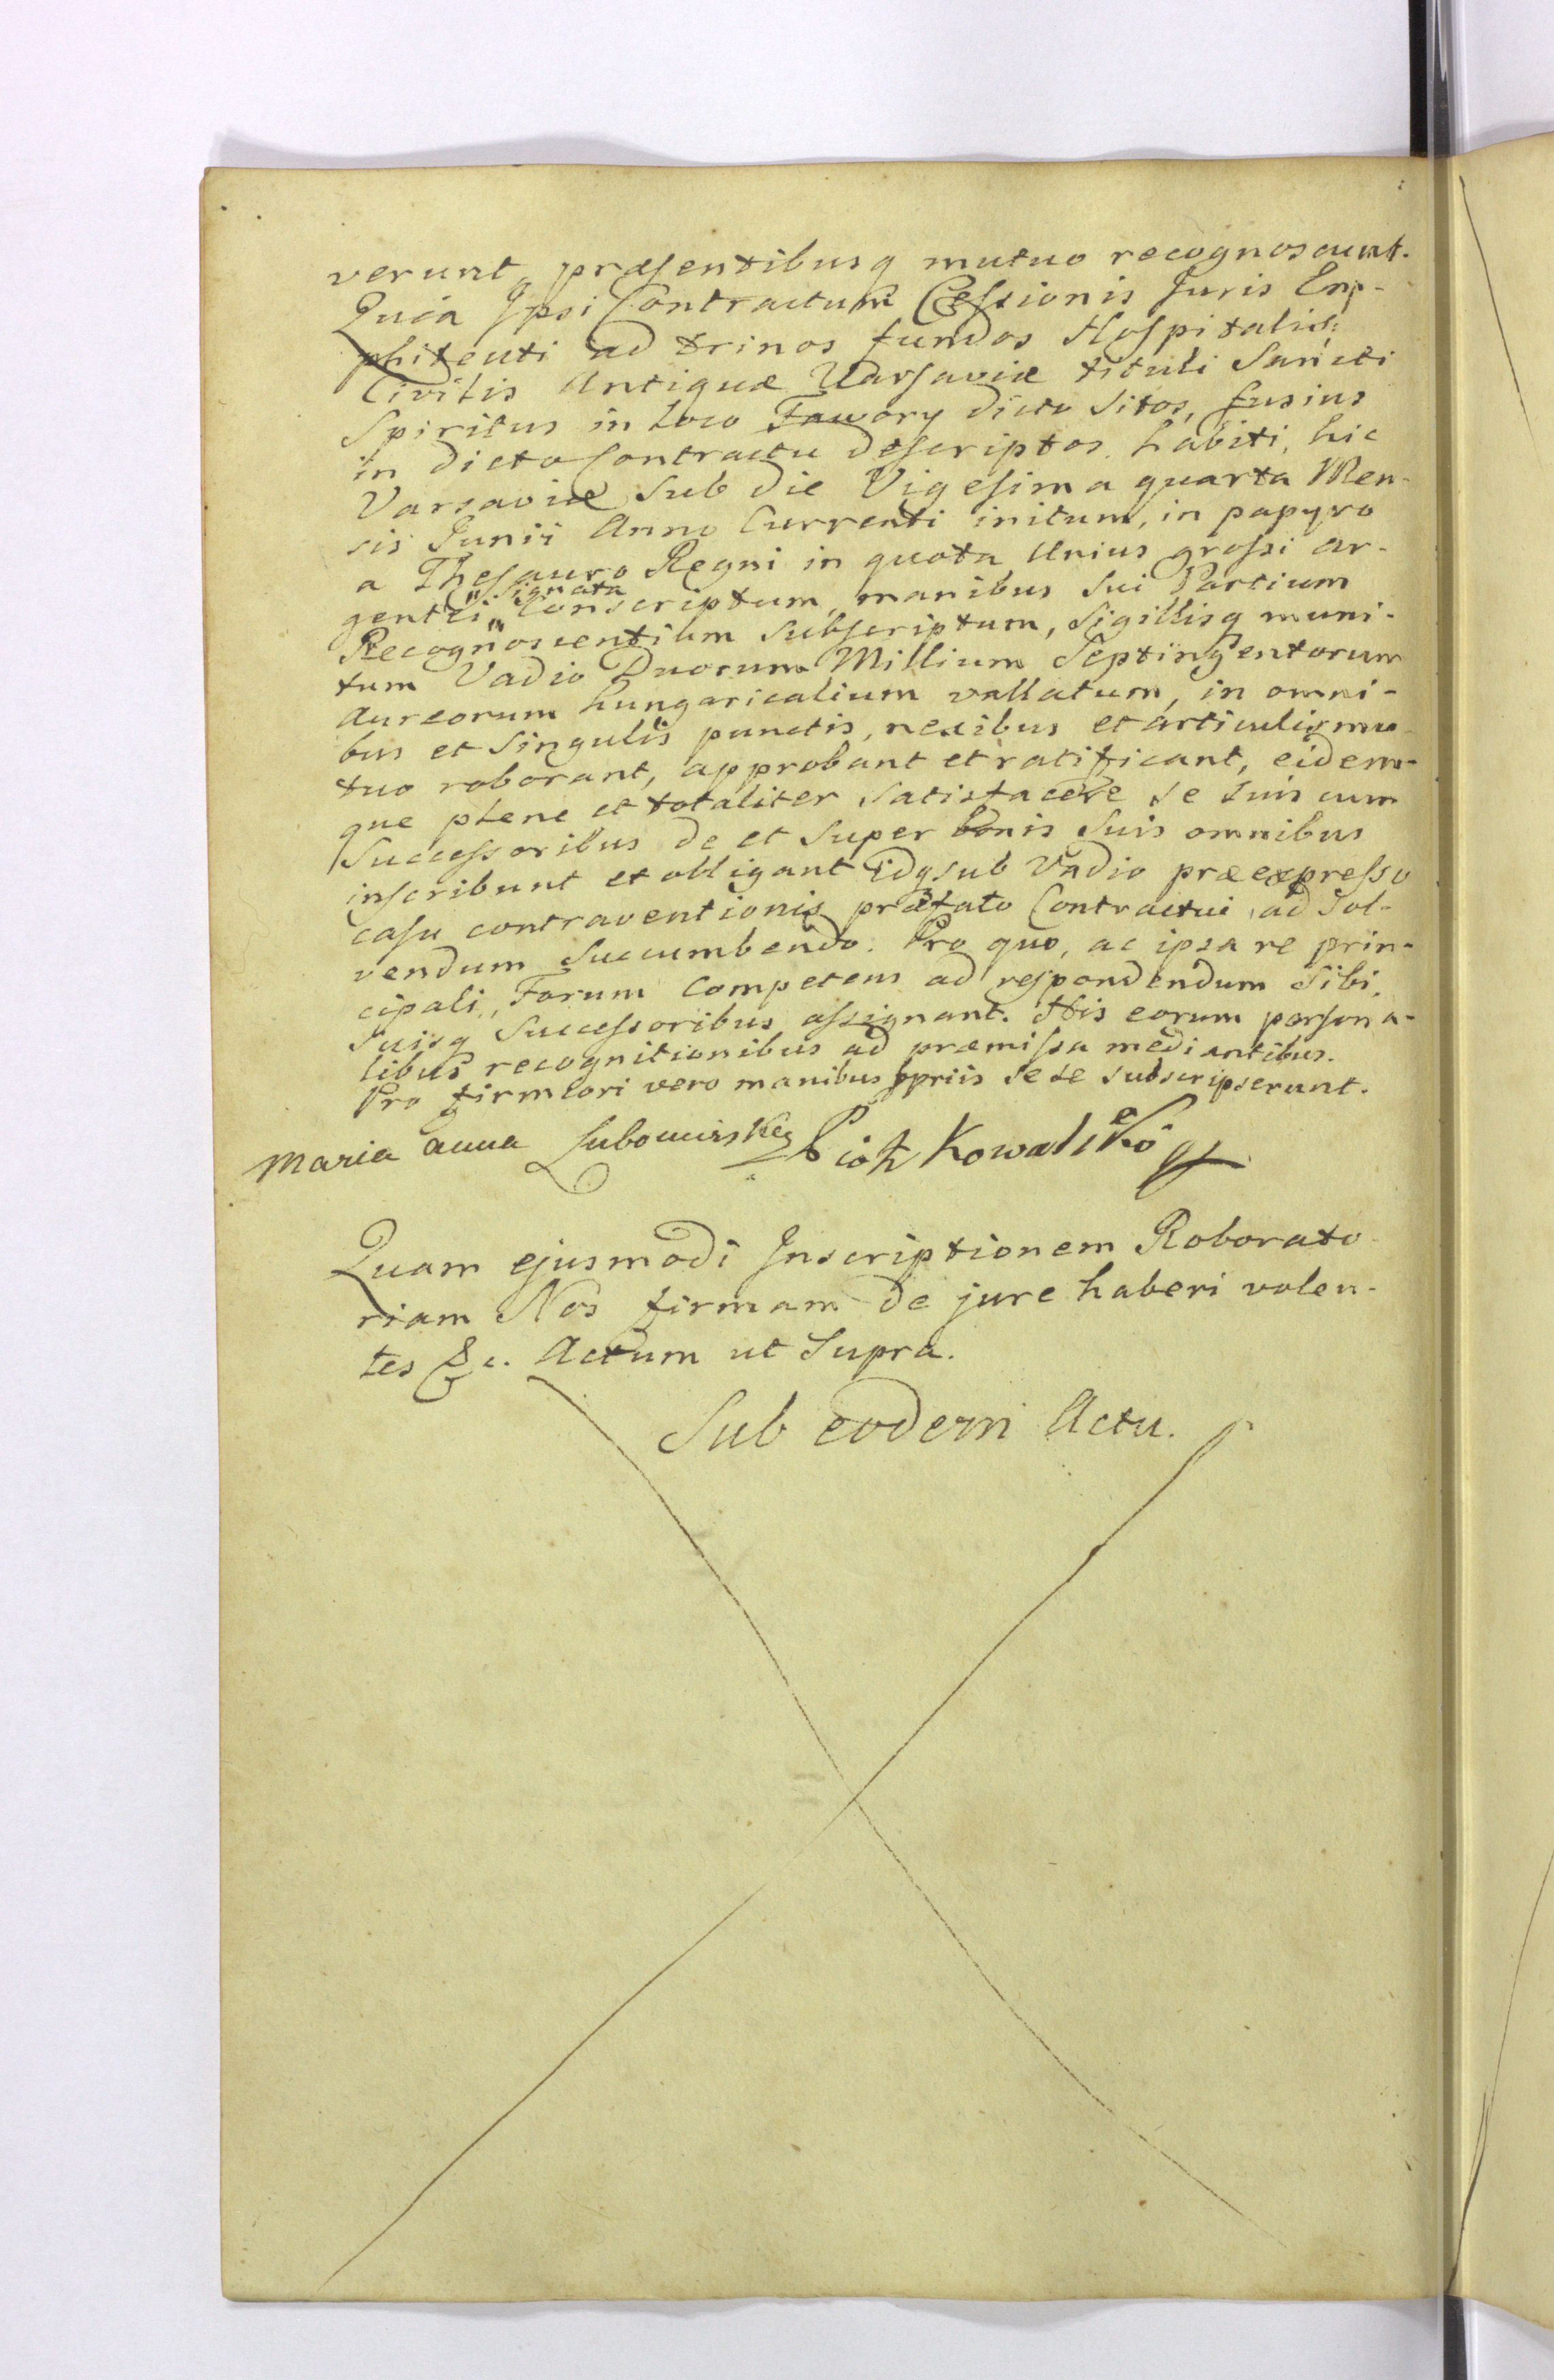 verunt, præsentibusq mutuo recognoscunt.
Quia Ipsi Contractum Cessionis Juris Emp-
phiteuti ad trinos fundos Hospitalis
Civilis Antiquæ Varsaviæ tituli Sancti
Spiritus in loco Fawory dicto sitos, fusius
in dicto Contractu descriptos habiti, hic
Varsaviæ sub die Vigesima quarta Men-
sis Junii Anno Currenti initum, in papyro
a Thesauro Regni in quota Unius grossi ar-
gentei "signata" Conscriptum, manibus sui Partium
Recognoscentium subscriptum, sigillisq muni-
tum Vadio Duorum Millium Septingentorum
Aureorum hungaricalium vallatum, in omni-
bus et singulis punctis, nexibus et articulis mu-
tuo roborant, approbant et ratificant, eidem-
que plene et totaliter satisfacere se suis cum
Successoribus de et super bonis suis omnibus
inscribunt et obligant Idq sub Vadio præexpresso
casu contraventionis præfato Contractui, ad sol-
vendum succumbendo. Pro quo, ac ipsa re prin-
cipali, Forum Competens ad respondendum sibi,
suisq Successoribus assignant. His eorum persona-
libus recognitionibus ad præmissa mediantibus.
Pro firmiori vero manibus ppriis sese subscripserunt.
Maria anna Lubomirska Piotr Kowalski
Quam ejusmodi Inscriptionem Roborato-
riam Nos firmam de jure haberi volen-
tes &c. Actum ut Supra.
Sub eodem Actu.